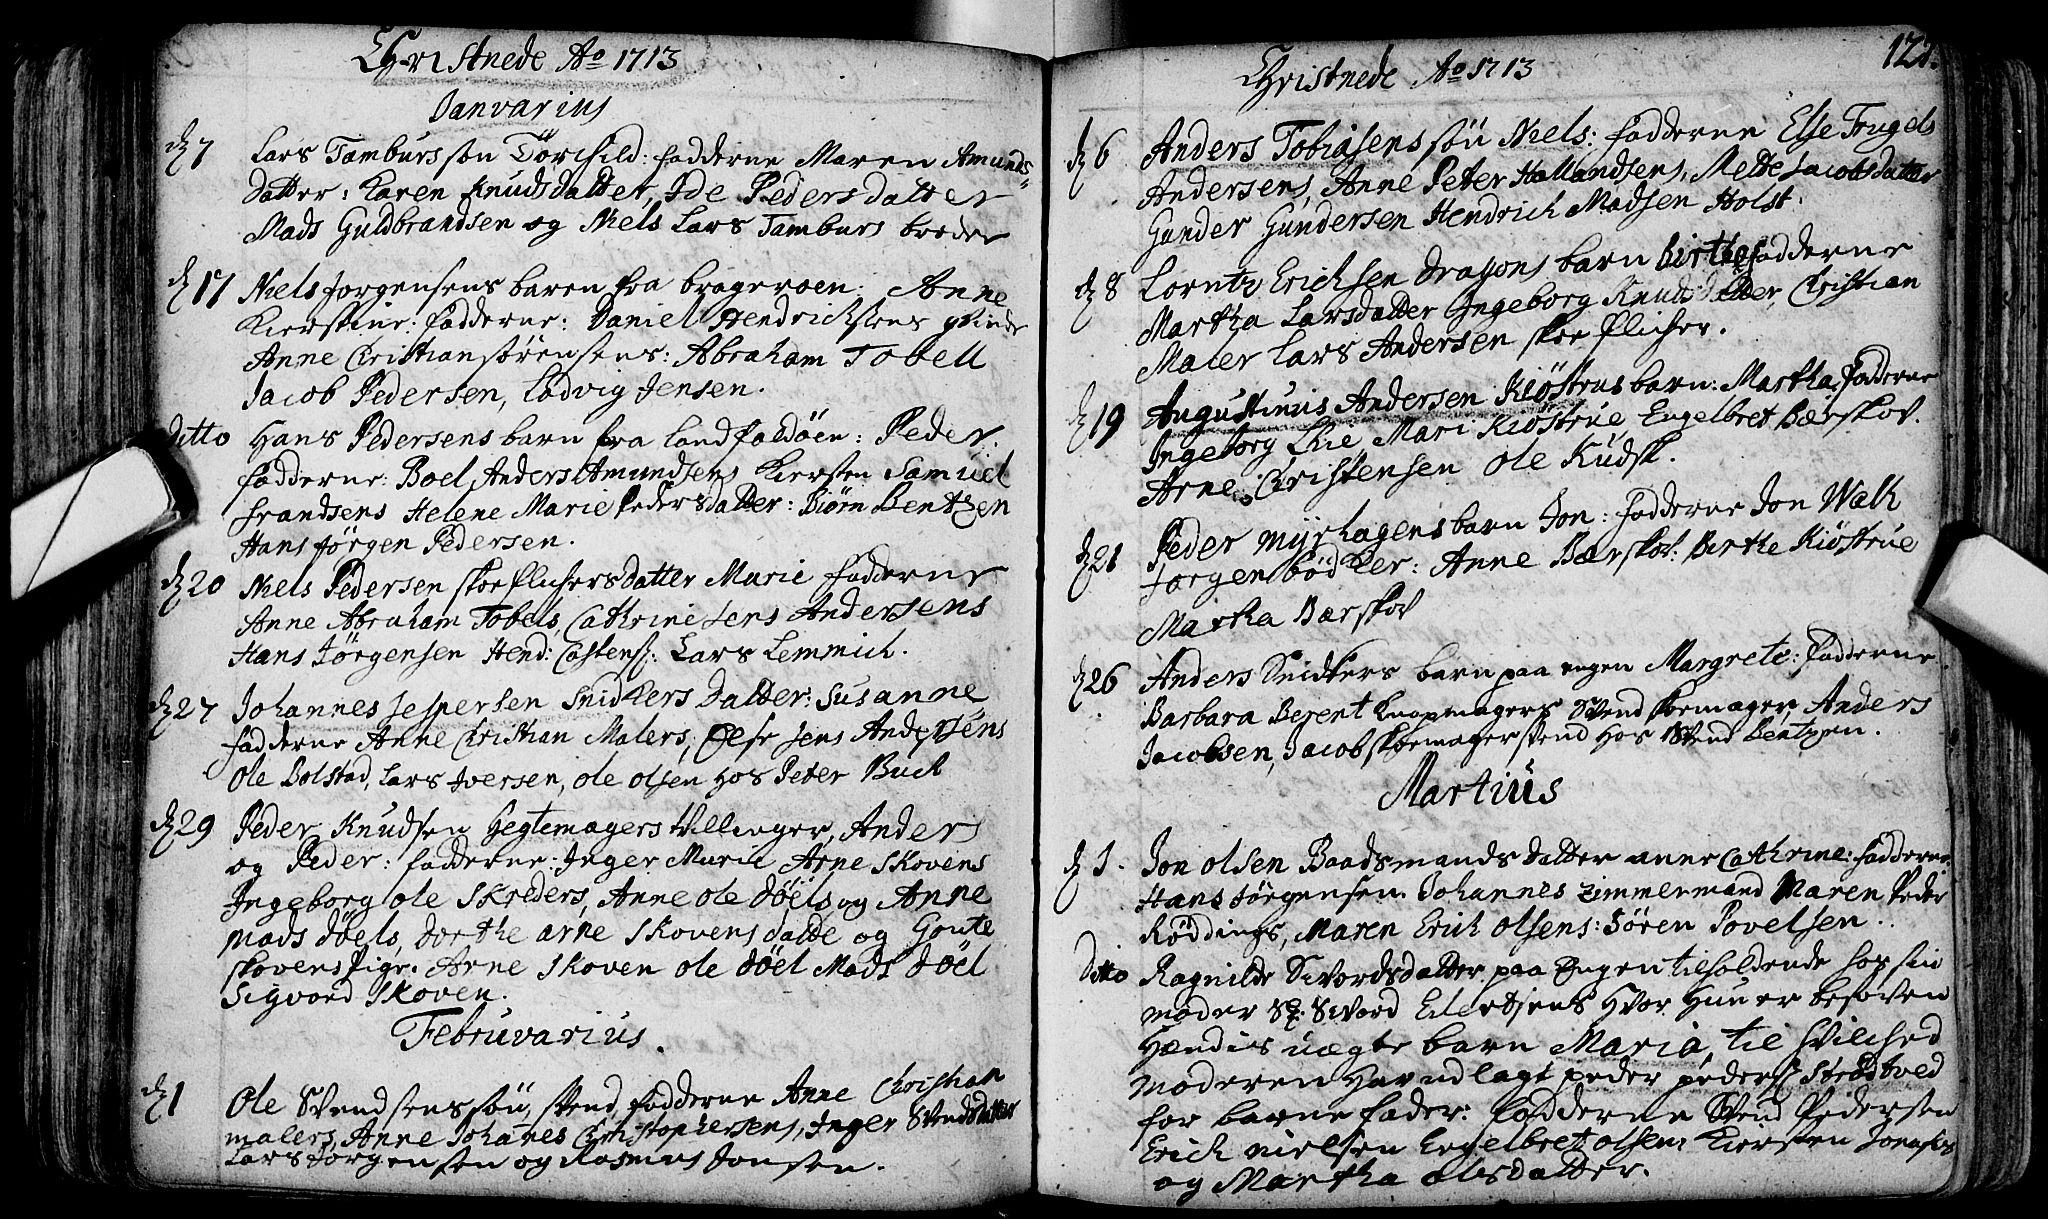 Christnede Ao 1713
Janvarius
dȝ 7 Lars Tamburs søn Törchild: fadderne Maren Amunds-
datter: Karen Knudsdatter, Ide Pedersdatter
Mads Guldbrandsen og Niels Lars Tamburs broder
dȝ 17 Niels Jorgensens baren fra bragernæs: Anne
Kierstine: fadderne: Daniel Hendrichsens qvinde
Anne Christian sörensens: Abraham Tobell
Jacob Pedersen, Ladvig Jensen.
Ditto Hans Pedersens barn fra Landfaldöen: Peder.
fadderne: Boel Anders Amundsens Kiersten Samuel
frandsens Helene Marie Pedersdatter: Biörn Bentzen
Hans Jörgen Pedersen.
dȝ 20 Niels Pedersen skoeflichers datter Marie fadderne
Anne Abraham Tobels, Cathrine Jens Andersens
Hans Jörgensen Hend: Costens: Lars Lemmich.
dȝ 27 Johannes Jespersen Snidkers Datter: Susanne
fadderne Anne Christian Malers, Else Jens Andersens
Ole Bolstad, Lars Iversen, ole olsen Hos Peter Buch
dȝ 29 Peder Knudsen Hegtemagers tvillinger, Anders
og Peder: fadderne: Inger Marie Arne Skovens
Ingeborg ole Skreders, Anne ole döels og Anne
Mads döels, dorthe arne Skovens datte og Goute
skovens Pige. Arne Skoven ole döel Mads döel
Sigvord Skoven.
Februvarius.
dȝ 1 Ole Svendsens sön, Svend, fadderne Anne Christian
malers, Anne Johanes Christophersens, Inger Svendsdatter
Lars Jörgensen og Rasmus Jonsen.
Christnede Ao 1713
122.
dȝ 6 Anders Tobiasens sön Niels: fadderne Else Trugels
Andersens, Anne Peter Hallandsens, Mette Jacobsdatter
Gunder Gundersen Hendrich Madsen Holst.
dȝ 8 Lorntz Erichsen dragons barn birthe fadderne
Martha Larsdatter Ingeborg Knudsdatter Christian
Maler Lars Andersen skoeflicher.
dȝ 19 Augustinus Andersen Kiöstrus barn: Martha, fadderne
Ingeborg Lie Mari Kiöstrue, Engelbret Bærskov.
Arne Christensen ole Kudsk.
dȝ 21 Peder Myrhagens barn Jon: fadderne Jon Walk
Jorgen bödker: Anne Bærskov: Berthe Kiöstrue
Martha Bærskov
dȝ 26 Anders Snidkers barn paa engen Margrete: fadderne
Barbara Berent knapmagers Svend skomager, Anders
Jacobsen, Jacob skomagersvend Hos Svend Bentzen.
Martius
dȝ 1. Jon olsen Baadsmands datter anne Cathrine: fadderne
Hans Jörgensen. Johannes Zimmermand Maren Peder
Röddings, Maren Erich olsens: Sören Povelsen.
Ditto Ragnilde Sivordsdatter paa Engen tilholdende hos sin
moder Sȝ. Sivord Eilertsens Hvor Hun er besoven
Hendis uægte barn Maria, til Hvilched
moderen Har udlagt peder peders: Strödtved
for barne fader: fadderne Svend Pedersen
Erich nielsen Engelbret olsen: Kiersten Jonases
og Martha olsdatter.